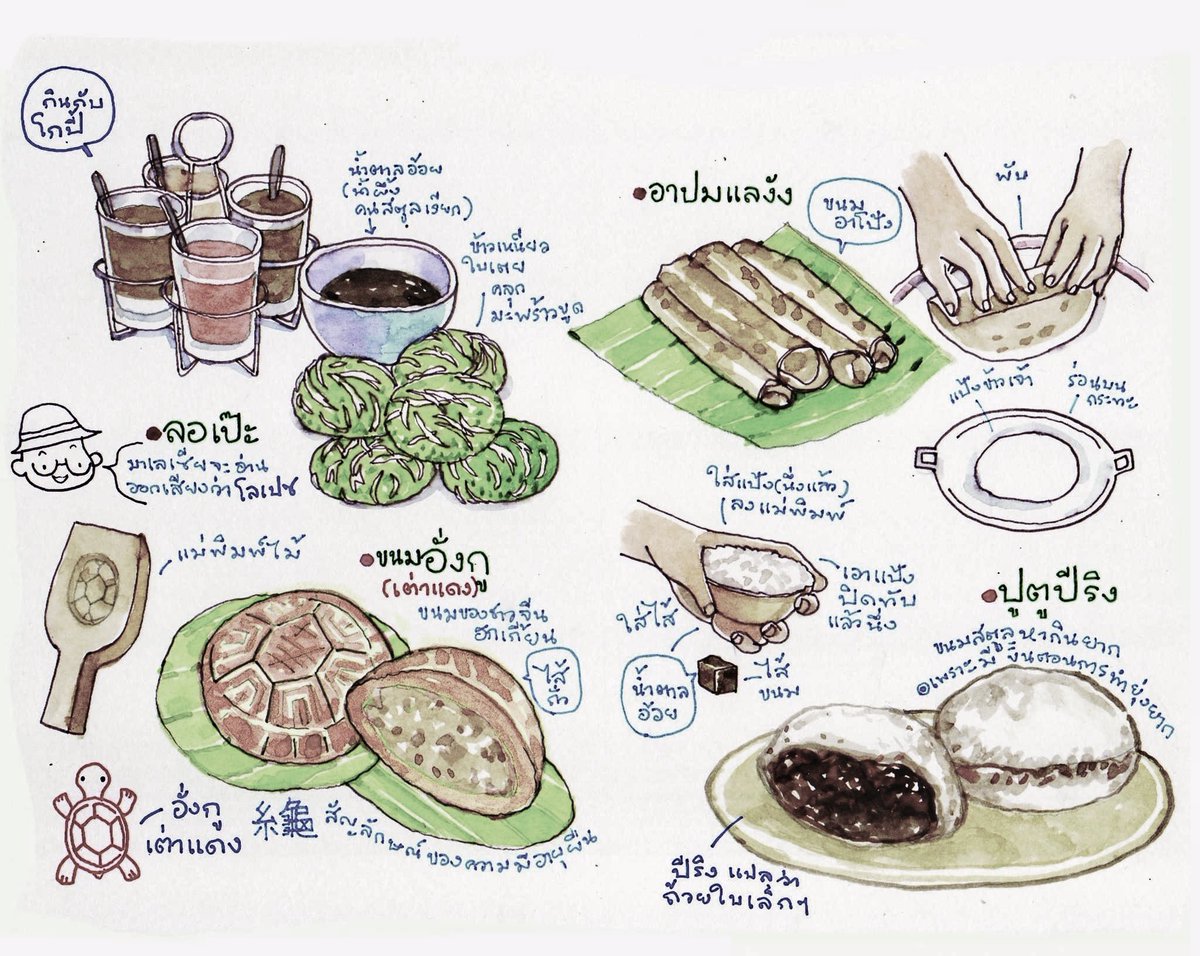 กินกับ
โกปี๊
น้ำตาลอ้อย
(น้ำผึ้ง
คนสตูลเรียก)
ข้าวเหนียว
ใบเตย
คลุก
มะพร้าวขูด
•ลอเป๊ะ
มาเลเซียจะอ่าน
ออกเสียงว่า โลเปช
•อาปมแลงัง
ขนม
อาโป้ง
พับ
แป้งข้าวเจ้า
ร่อนบน
กระทะ
แม่พิมพ์ไม้
•ขนมอั่งกู
(เต่าแดง)
ขนมของชาวจีน
ฮกเกี้ยน
ไส้
ถั่ว
อั่งกู
เต่าแดง
龜
สัญลักษณ์ของความมีอายุยืน
ใส่แป้ง(นึ่งแล้ว)
ลงแม่พิมพ์
ใส่ไส้
เอาแป้ง
ปิดทับ
แล้วนึ่ง
น้ำตาล
อ้อย
ไส้
ขนม
•ปูตูปีริง
ขนมสตูลหากินยาก
เพราะมีขั้นตอนการทำยุ่งยาก
ปีริง แปลว่า
ถ้วยใบเล็กๆ